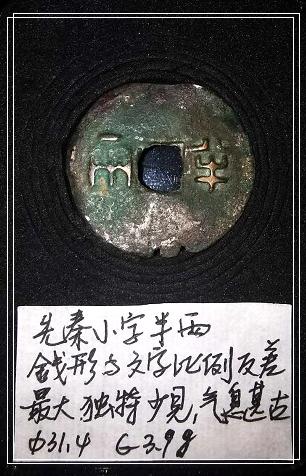 半兩
先秦小字半两
錢形与文字比例反差
最大.独特少見,气息甚古
Φ31.4 G3.9g